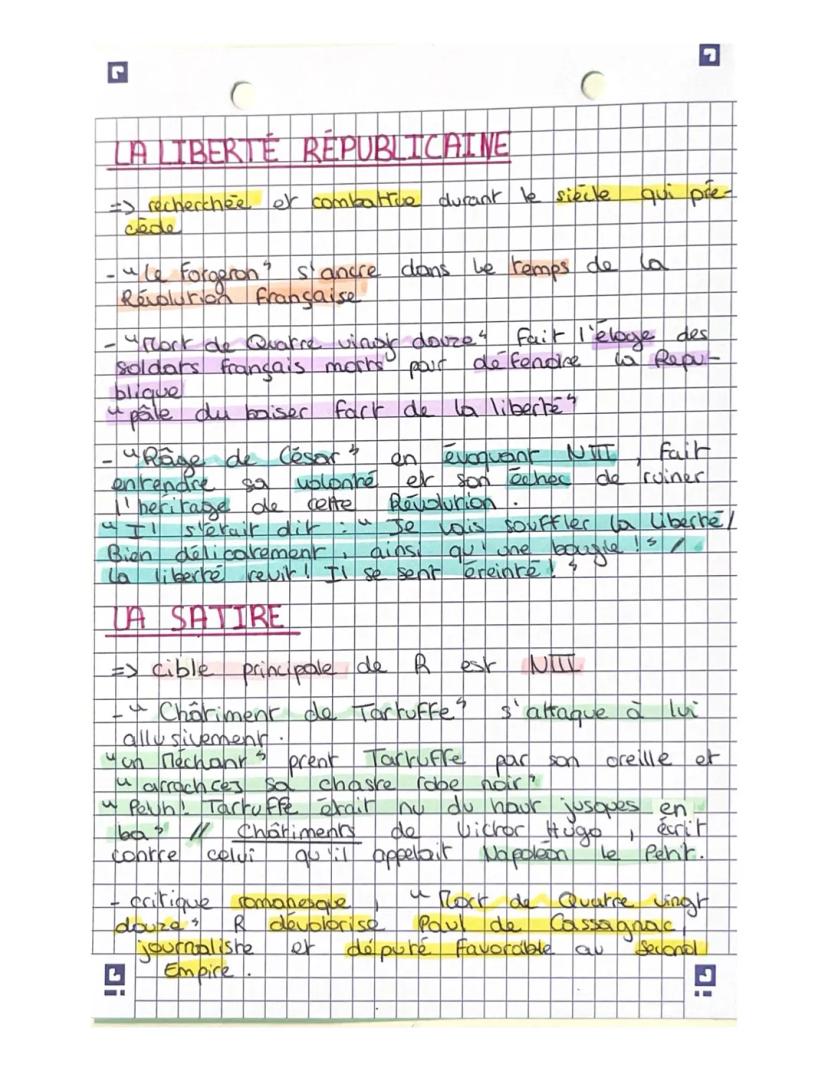 LA LIBERTÉ RÉPUBLICAINE
=> recherchée et combattue durant le siècle qui pré-
cède
- "Le Forgeron" s'ancre dans le temps de la
Révolution française
- "Mort de Quatre vingt douze" fait l'éloge des
soldats français morts pour défendre la Répu-
blique
"pâle du baiser fort de la liberté"
- "Râge de César" en évoquant NIII, fait
entendre sa volonté et son échec de ruiner
l'héritage de cette Révolution.
"Il s'était dit : "Je vais souffler la liberté /
Bien délicatement, ainsi qu'une bougie !" /
La liberté revit ! Il se sent éreinté !"
LA SATIRE
=> cible principale de R est NIII
- "Châtiment de Tartuffe" s'attaque à lui
allusivement.
"un Méchant" prent Tartuffe par son oreille et
"arrach ces sa chaste robe noir"
"Peuh ! Tartuffe était nu du haut jusques en
bas" // Châtiments de Victor Hugo, écrit
contre celui qu'il appelait Napoléon le Petit.
- critique romanesque, "Mort de Quatre vingt
douze" R dévalorise Paul de Cassagnac,
journaliste et député favorable au Second
Empire.